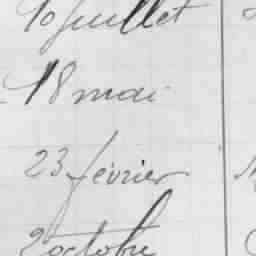 10 juillet
18 mai
23 février
2 octobre